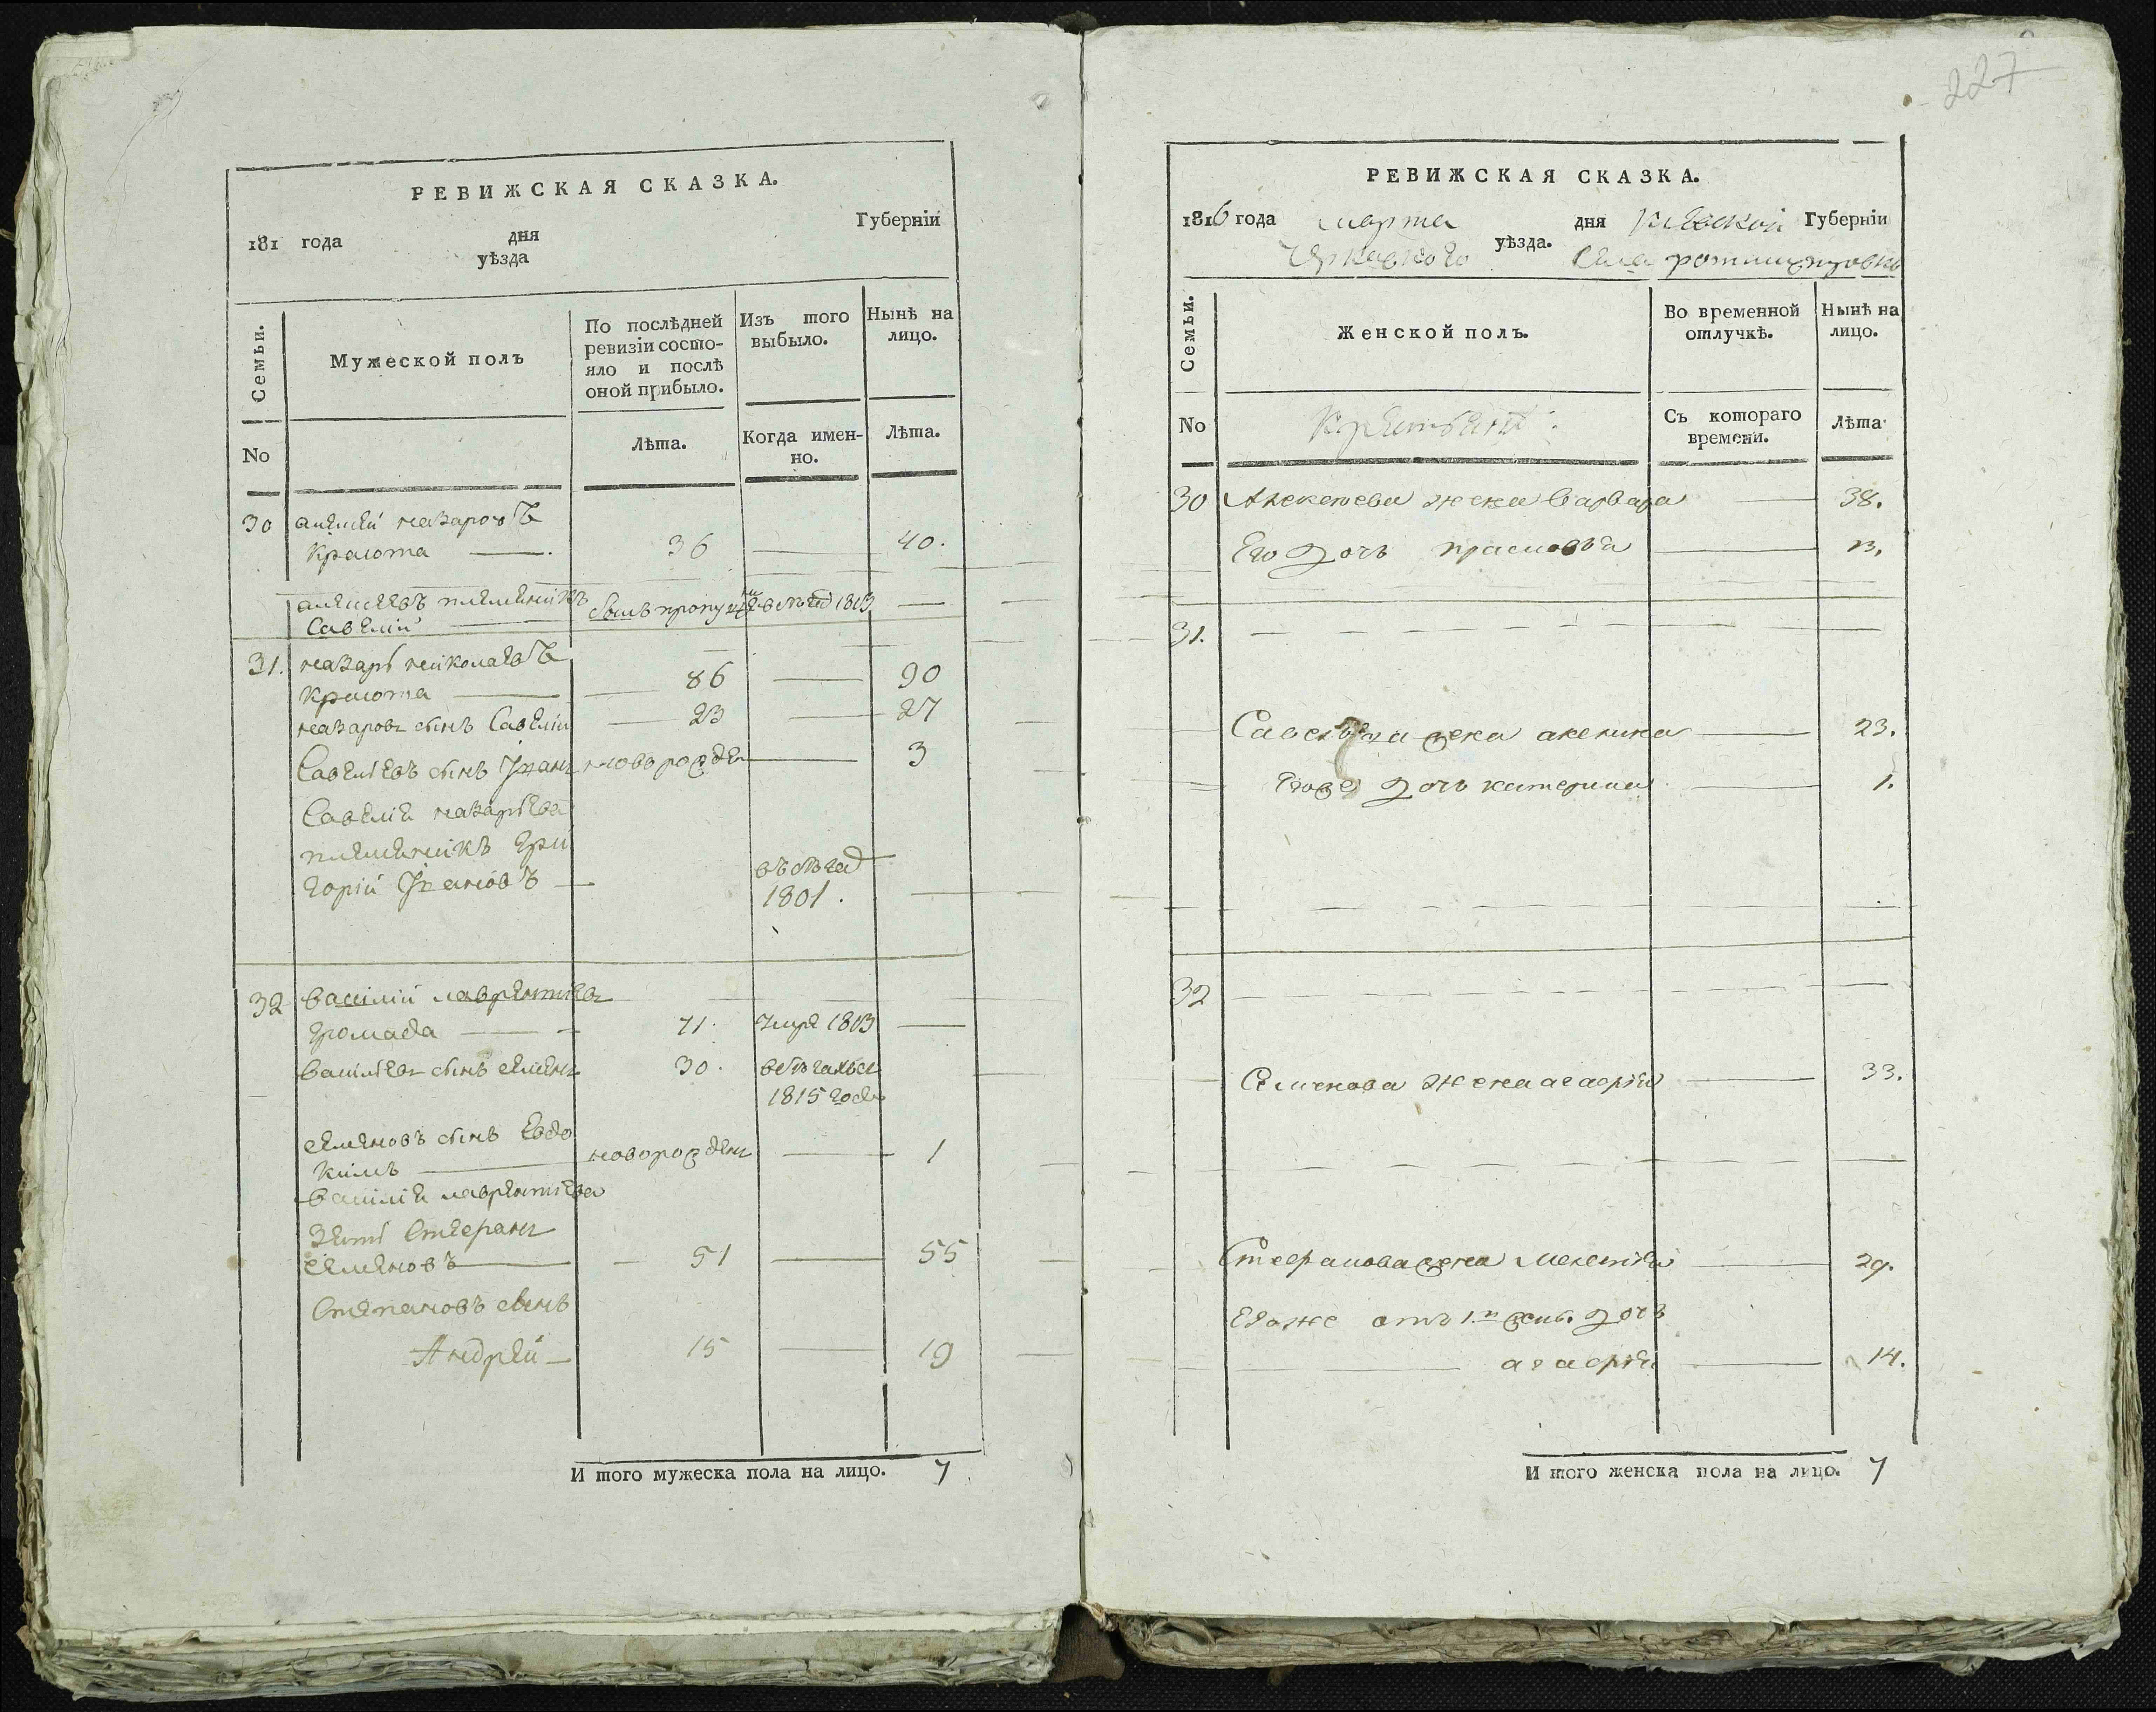 227
РЕВИЖСКАЯ СКАЗКА.
181 года дня Губерніи
уѣзда
Семьи. Мужеской полъ По послѣдней ревизіи состояло и послѣ оной прибыло. Изъ того выбыло. Нынѣ на лицо.
No Лѣта. Когда именно. Лѣта.
30 алексѣй назаровъ
Краюта 36 40.
алексѣевъ племенникъ
Савелий былъ пропущен 1813
31. назарь николаевъ
Краюта 86 90
назаровъ сынъ Савелій 23 27
Савельевъ сынъ Іванъ новорожден 3
Савелія назарьева
племенникъ Гри
горій Івановъ въ бѣгах
1801.
32 василій лаврентиевъ
громада 71. умре 1813
васильевъ сынъ семенъ 30. въ бѣгах
1815 года
семеновъ сынъ Евдо
кимъ новорожденъ 1
василія лаврентиева
зять Стефанъ
семеновъ 51 55
Степановъ сынъ
Андрей 15 19
И того мужеска пола на лицо. 7
РЕВИЖСКАЯ СКАЗКА.
1816 года марта дня Киевской Губерніи
Черкаского уѣзда. Села
Семьи. Женской полъ. Во временной отлучкѣ. Нынѣ на лицо.
No Крестьянѣ Съ котораго времени. Лѣта
30 Алексеева жена Варвара 38.
Его дочь прасковья 13.
31.
Савельева жена акелина 23.
Егоже дочь катерина 1.
32
Семенова жена агафия 33.
Стефанова жена мелания 29.
Егоже отъ 1й жены дочь
агафия 14.
И того женска пола на лицо. 7